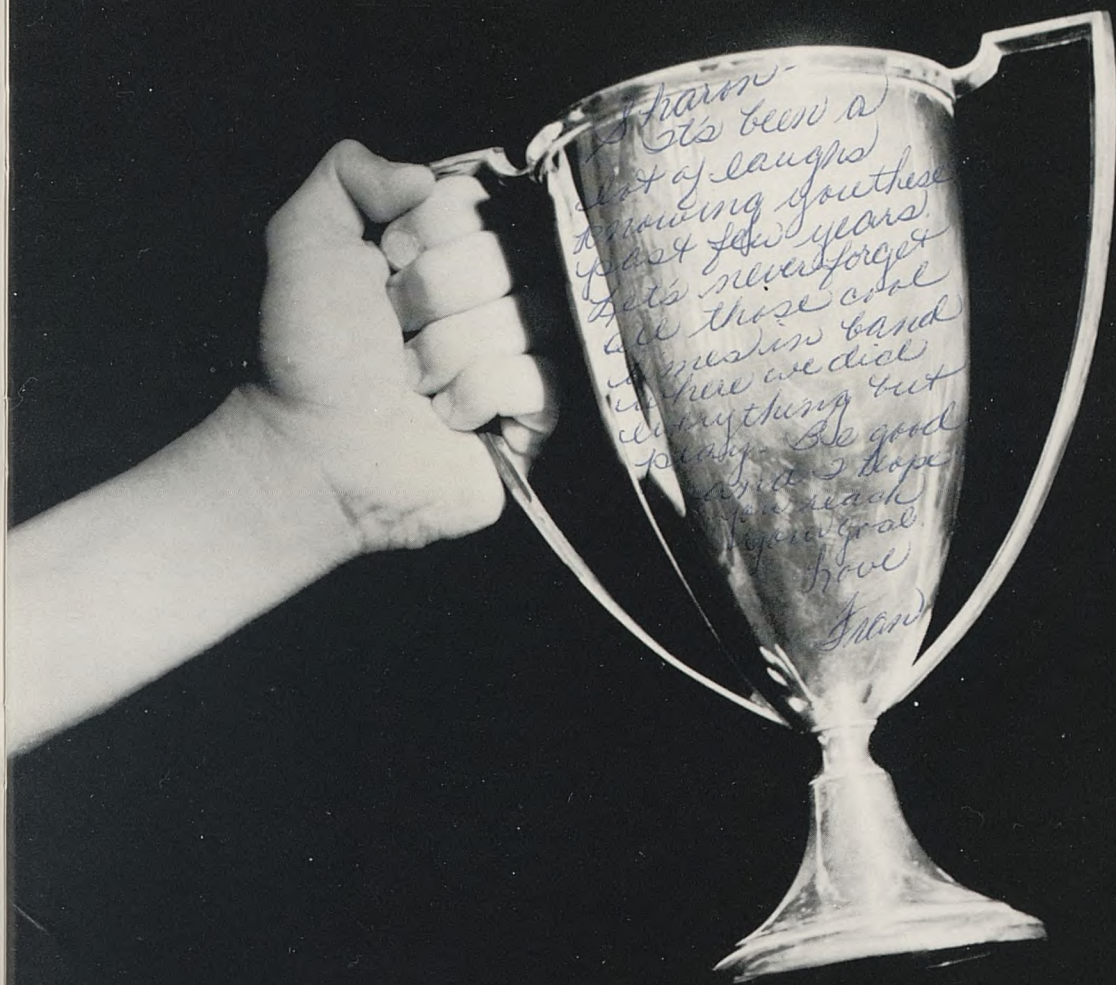 Sharon-
It's been a
lot of laughs
knowing you these
past few years.
Let's never forget
all those cool
times in band
where we did
everything but
play. Be good
and I hope
you reach
your goal.
Love
Fran